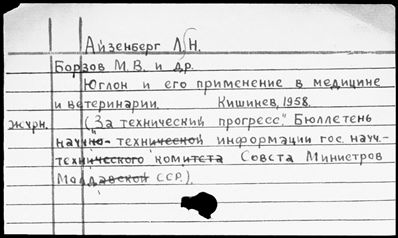 Айзенберг Л.Н.
Борзов М.В. и др.
Юглон и его применение в медицине
и ветеринарии. Кишинев, 1958.
журн. ("За технический прогресс". Бюллетень
научно-технической информации гос. науч.-
технического комитета Совета Министров
Молдавской ССР).